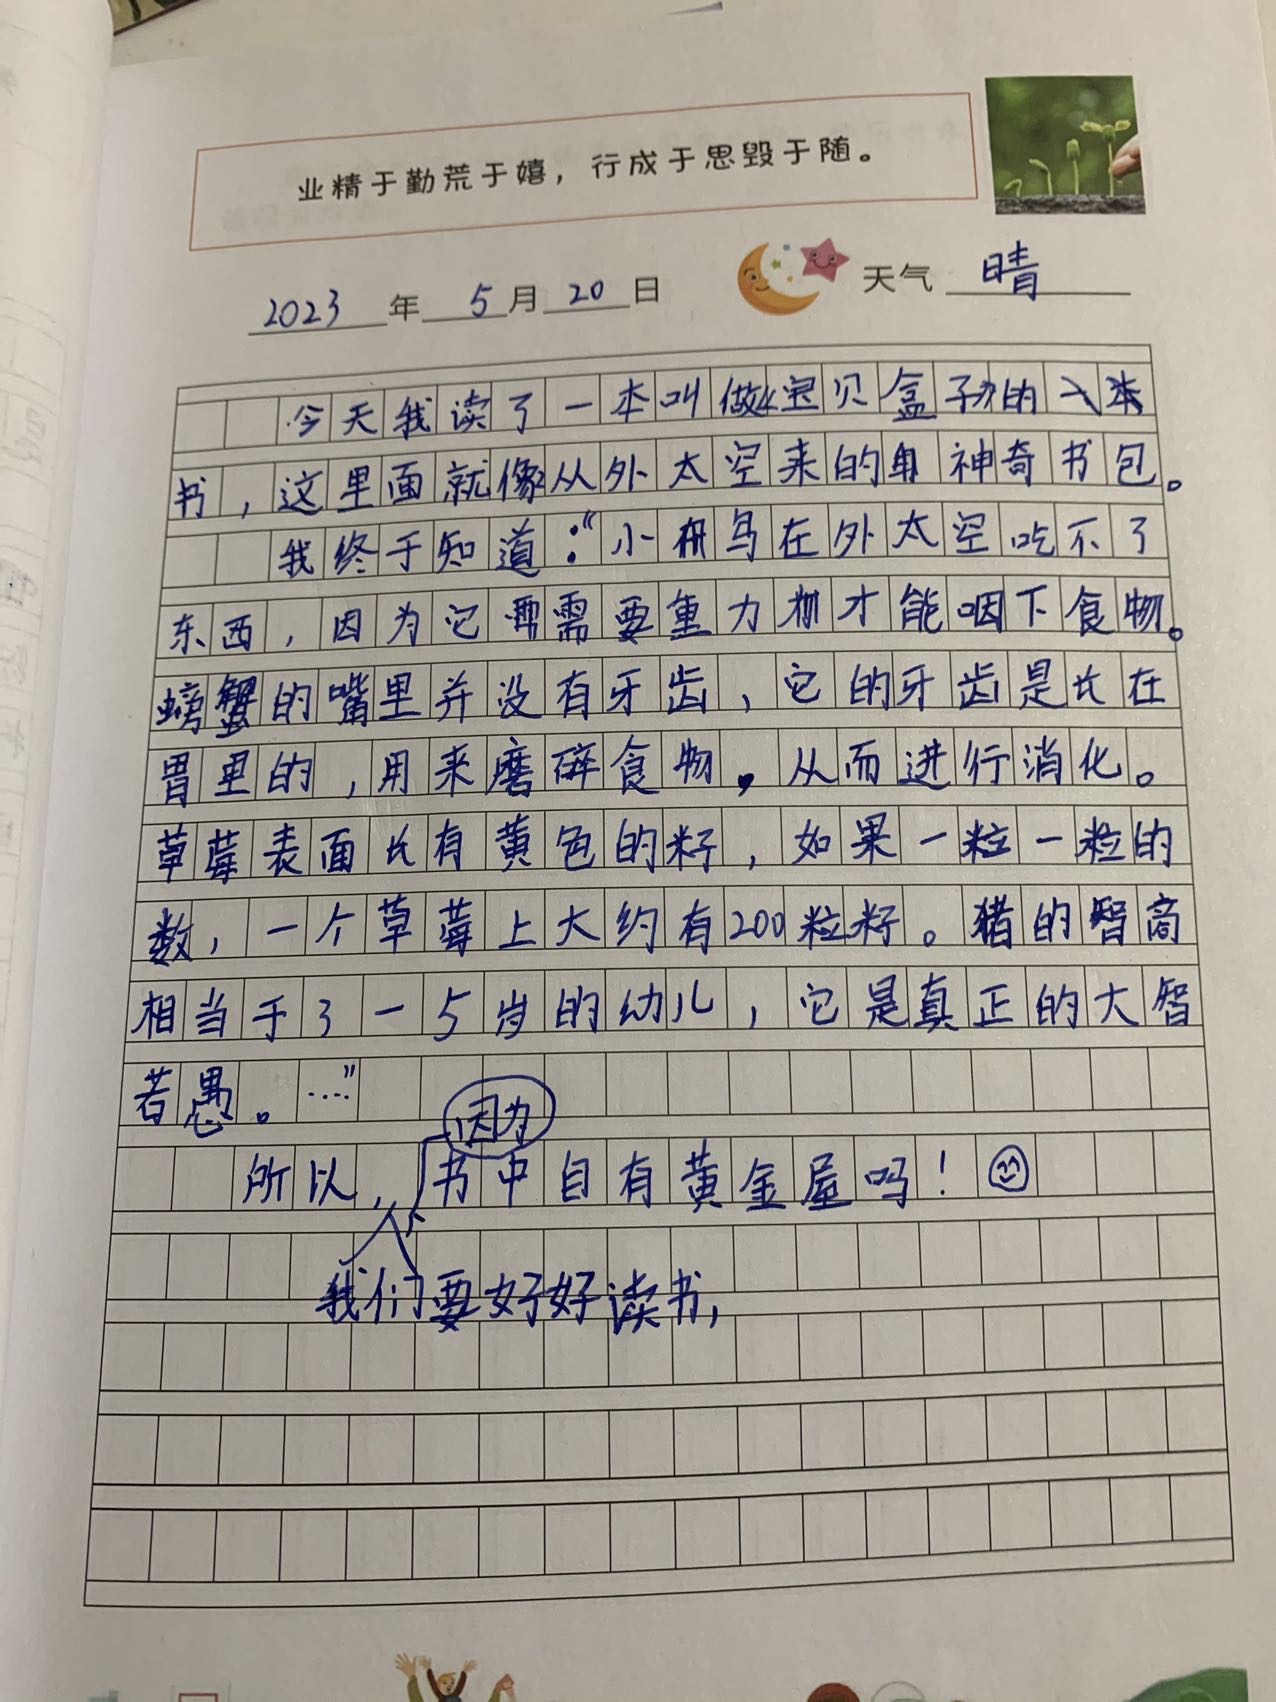 业精于勤荒于嬉，行成于思毁于随。
2023年5月20日 天气 晴
今天我读了一本叫做《宝贝盒子》的
书，这里面就像从外太空来的神奇书包。
我终于知道：“小鸟在外太空吃不了
东西，因为它需要重力才能咽下食物。
螃蟹的嘴里并没有牙齿，它的牙齿是长在
胃里的，用来磨碎食物，从而进行消化。
草莓表面长有黄色的籽，如果一粒一粒的
数，一个草莓上大约有200粒籽。猪的智商
相当于3－5岁的幼儿，它是真正的大智
若愚。……”
因为
所以，书中自有黄金屋吗！
我们要好好读书，